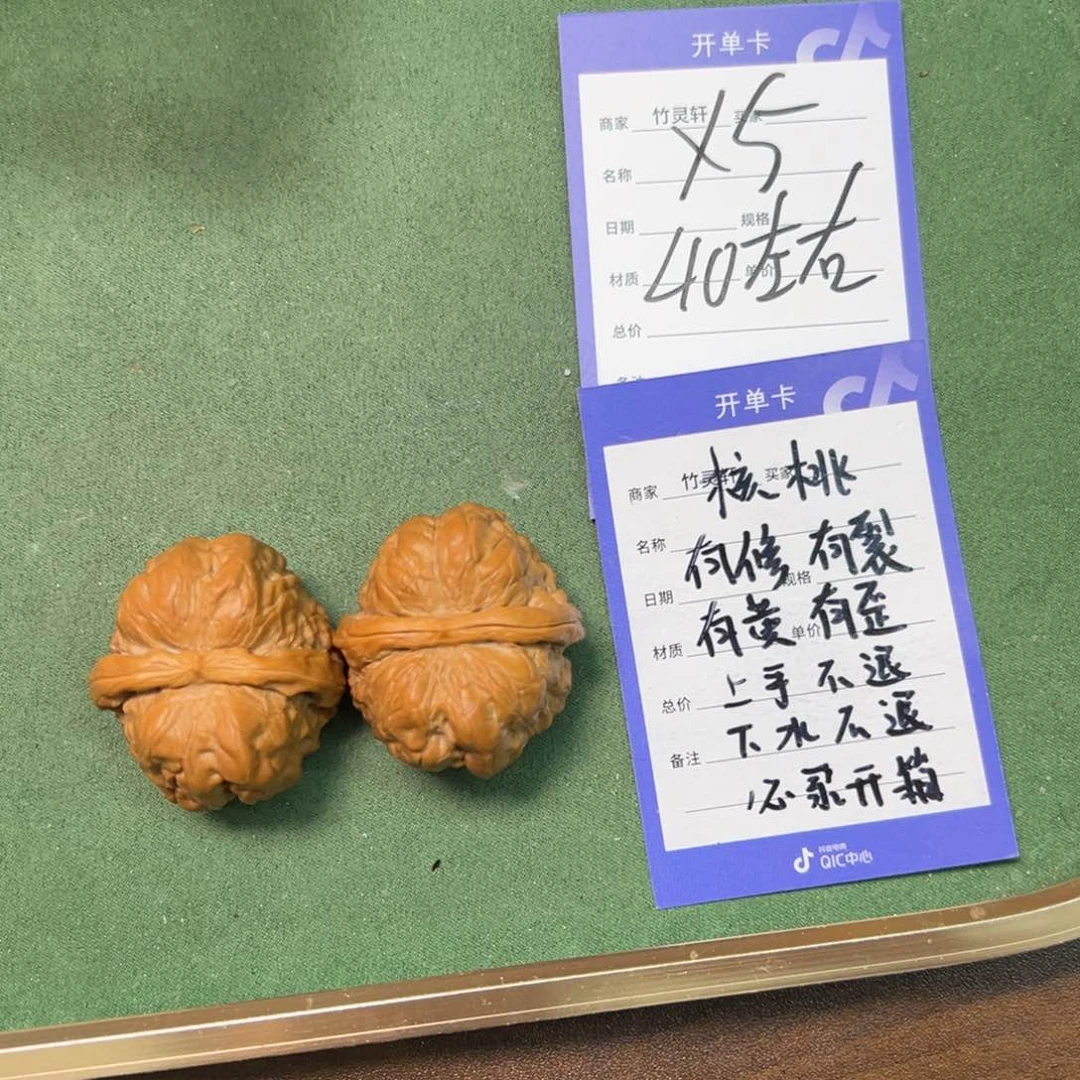 开单卡
商家 竹灵轩 买家
X5
名称
日期 规格
40左右
材质 单价
总价
备注
开单卡
商家 竹灵轩 买家
核桃
名称
有修 有裂
日期 规格
有黄 有歪
材质 单价
上手 不退
总价
下水不退
备注
必录开箱
抖音电商
QIC中心